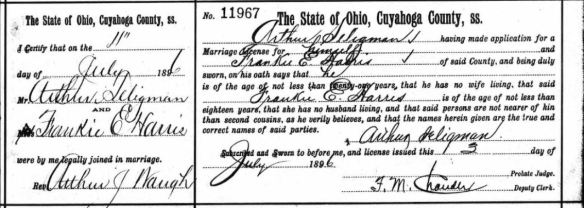 The State of Ohio, Cuyahoga County, ss.
I Certify that on the 11"
day of July 1896
Mr Arthur Seligman
AND
Frankie E Harris
were by me legally joined in marriage.
Rev Arthur J Waugh
No. 11967 The State of Ohio, Cuyahoga County, ss.
Arthur Seligman having made application for a
Marriage License for himself and
Frankie E. Harris of said County, and being duly
sworn, on his oath says that he
is of the age of not less than twenty-one years, that he has no wife living, that said
Frankie E. Harris is of the age of not less than
eighteen years, that she has no husband living, and that said persons are not nearer of kin
than second cousins, as he verily believes, and that the names herein given are the true and
correct names of said parties.
Arthur Seligman
Subscribed and Sworn to before me, and license issued this 3 day of
July 1896.
Probate Judge.
F. M. Deputy Clerk.